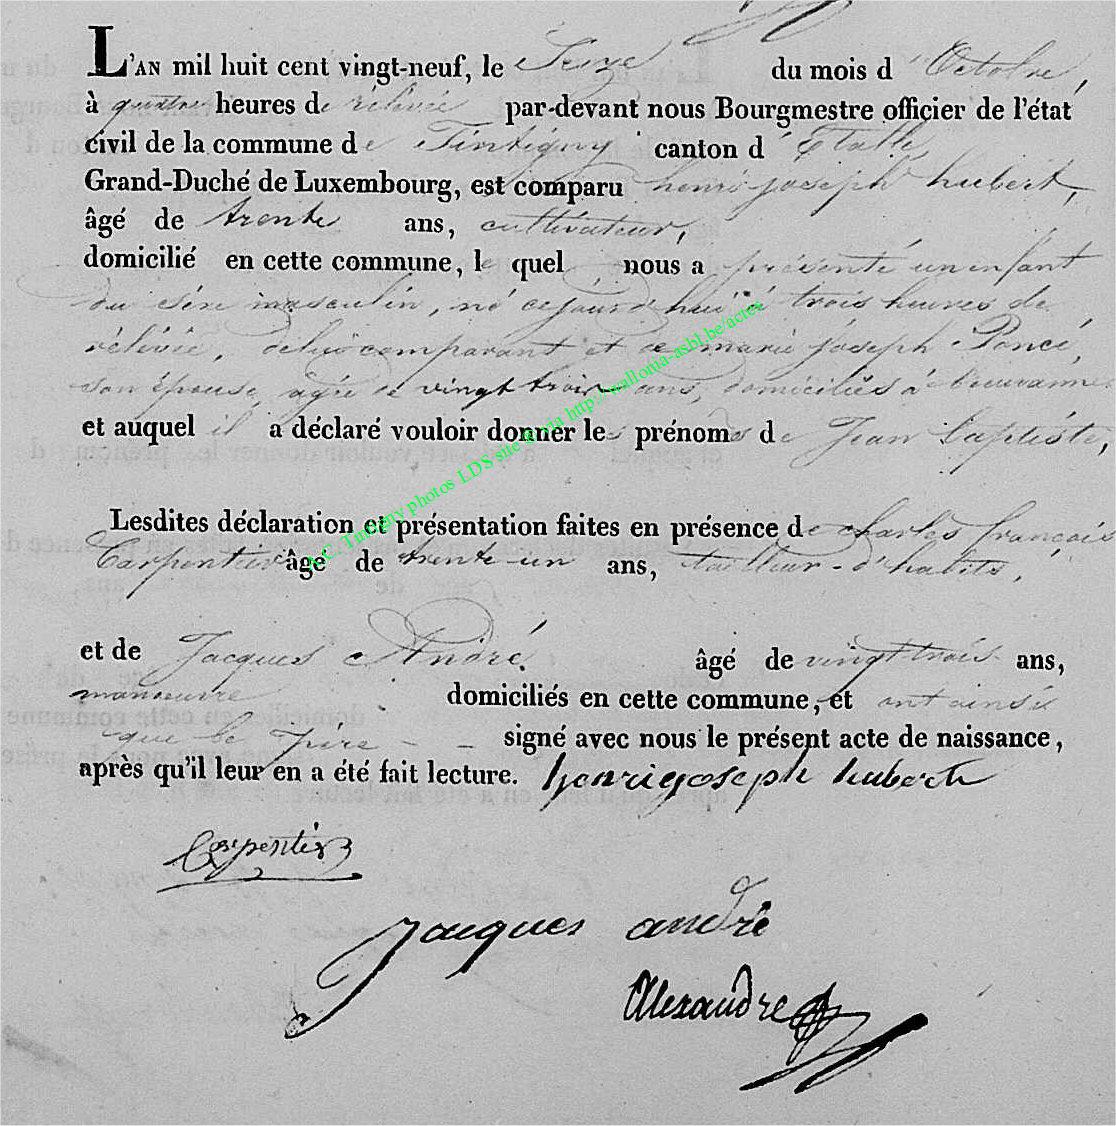 L'AN mil huit cent vingt-neuf, le Seize du mois d'Octobre,
à quatre heures de rélévée par-devant nous Bourgmestre officier de l'état
civil de la commune de Tintigny canton d'Étalle,
Grand-Duché de Luxembourg, est comparu henri joseph hubert,
âgé de trente ans, cultivateur,
domicilié en cette commune, le quel nous a présenté un enfant
du séxe masculin, né cejourd'hui à trois heures de
rélévée, delui comparant et de marie joseph Poncé,
son épouse, agée de vingt trois ans, domiciliés à
et auquel il a déclaré vouloir donner les prénoms de Jean baptiste,
Lesdites déclaration et présentation faites en présence de charles francois
Carpentier âgé de trente-un ans, tailleur-d'habits,
et de Jacques André. âgé de vingt trois ans,
manoeuvre domiciliés en cette commune, et ont ainsi
que le Père - - signé avec nous le présent acte de naissance,
après qu'il leur en a été fait lecture. henri joseph hubert
Carpentier
jacques andré
Alexandre
A.C. Tintigny photos LDS site @ via http://wallonia-asbl.be/actes